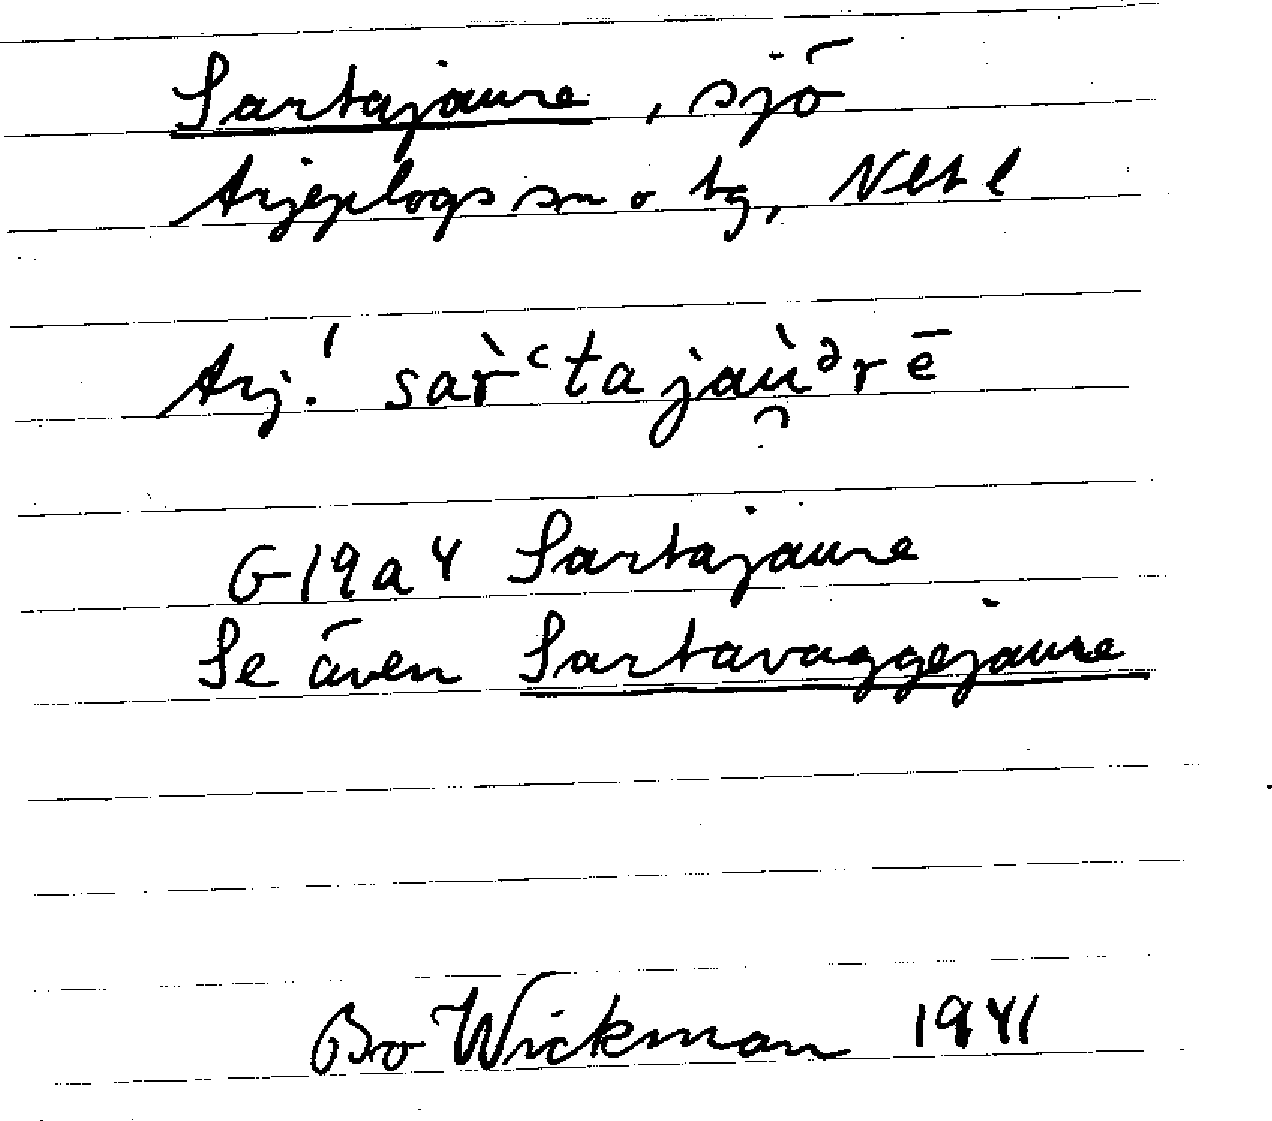 Sartajaure, sjö
Arjeplogs sn o tg, Nbt l
Arj.! sar̀ʿtajaù̯ᵊrē
G19a4 Sartajaure
Se även Sartavaggejaure
Bo Wickman 1941